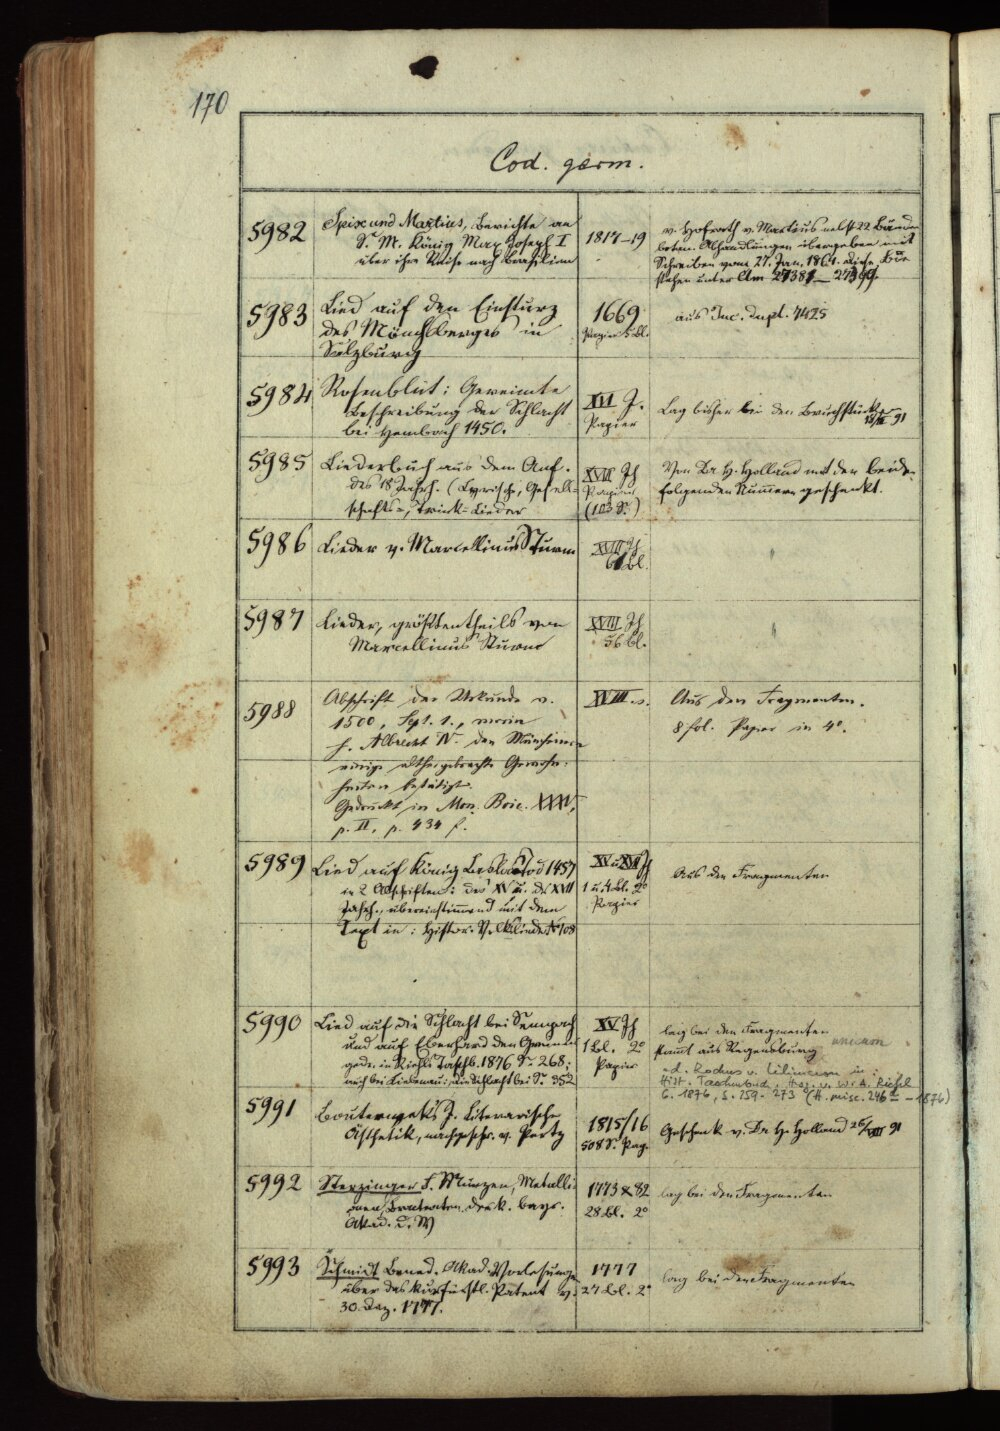 170
Cod. germ.
5982
Spix und Martius, Berichte an
S. M. König Max Joseph I
über ihre Reise nach Brasilien
1817–19
v. Hofrath v. Martius nebst 22 Bänden
botan. Abhandlungen übergeben mit
Schreiben vom 27. Jan. 1864. diese
stehen unter Clm 27381–27399.
5983
Lied auf den Einsturz
des Mönchsberges in
Salzburg
1669
Papier 5 Bl.
aus Inc. dupl. 7425
5984
Rosenblüt: Gereimte
Beschreibung der Schlacht
bei Hembach 1450.
XVI J.
Papier
Lag bisher bei den Bruchstücken
91
5985
Liederbuch aus dem Anf.
des 18 Jahrh. (Lyrische, Gesell-
schafts-, Trink-Lieder
XVIII Jh
Papier
(103 S.)
Von Dr H. Holland mit den beiden
folgenden Nummern geschenkt.
5986
Lieder v. Marcellinus Sturm
XVIII Jh
61 Bl.
"
5987
Lieder, größtentheils von
Marcellinus Sturm
XVIII Jh
56 Bl.
"
5988
Abschrift der Urkunde v.
1500, Sept. 1., worin
H. Albrecht IV. den Münchnern
einige althergebrachte Gewohn-
heiten bestätigt.
Gedruckt in Mon. Boic. XXXV,
p. II, p. 434 f.
XVIII s.
Aus den Fragmenten.
8 fol. Papier in 4º.
5989
Lied auf König Laslaus Tod 1457
in 2 Abschriften: des XV u. des XVII
Jahrh., übereinstimmend mit dem
Text in: Histor. Volkslieder Nº 108
XV u XVII Jh
1 u. 4 Bl. 2º
Papier
Aus den Fragmenten
5990
Lied auf die Schlacht bei Sempach
und auf Eberhard den Greiner
gedr. in Riehls Taschb. 1876 S. 268;
nach bei Liliencron: die Schlacht bei S. 352
XV Jh
1 Bl. 2º
Papier
lag bei den Fragmenten
stammt aus Regensburg
unicum
ed. Rochus v. Liliencron in:
Hist. Taschenbuch. Hsg. v. W. A. Riehl
6. 1876, S. 259-273 (H. misc. 246 – 1876)
5991
Bouterweks F. Literarische
Ästhetik, nachgeschr. v. Pertz
1815/16
508 S. Pap.
Geschenk v. Dr H. Holland 26/VIII 91
5992
Sterzinger F. Münzen, Medaill
onen, Brakteaten der k. bayr.
Akad. d. W)
1773 & 82
28 Bl. 2º
lag bei den Fragmenten
5993
Schmidt Bened. Akad. Vorlesungen
über das kurfürstl. Patent v.
30. Dez. 1777.
1777
27 Bl. 2º
lag bei den Fragmenten